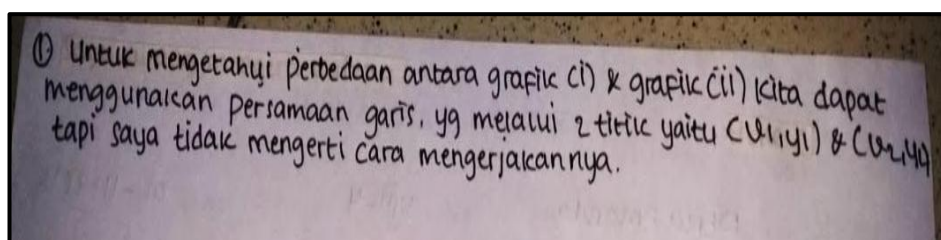 ① Untuk mengetahui perbedaan antara grafik (i) & grafik (ii) kita dapat
menggunakan persamaan garis, yg melalui 2 titik yaitu (x1,y1) & (x2,y2)
tapi saya tidak mengerti cara mengerjakannya.